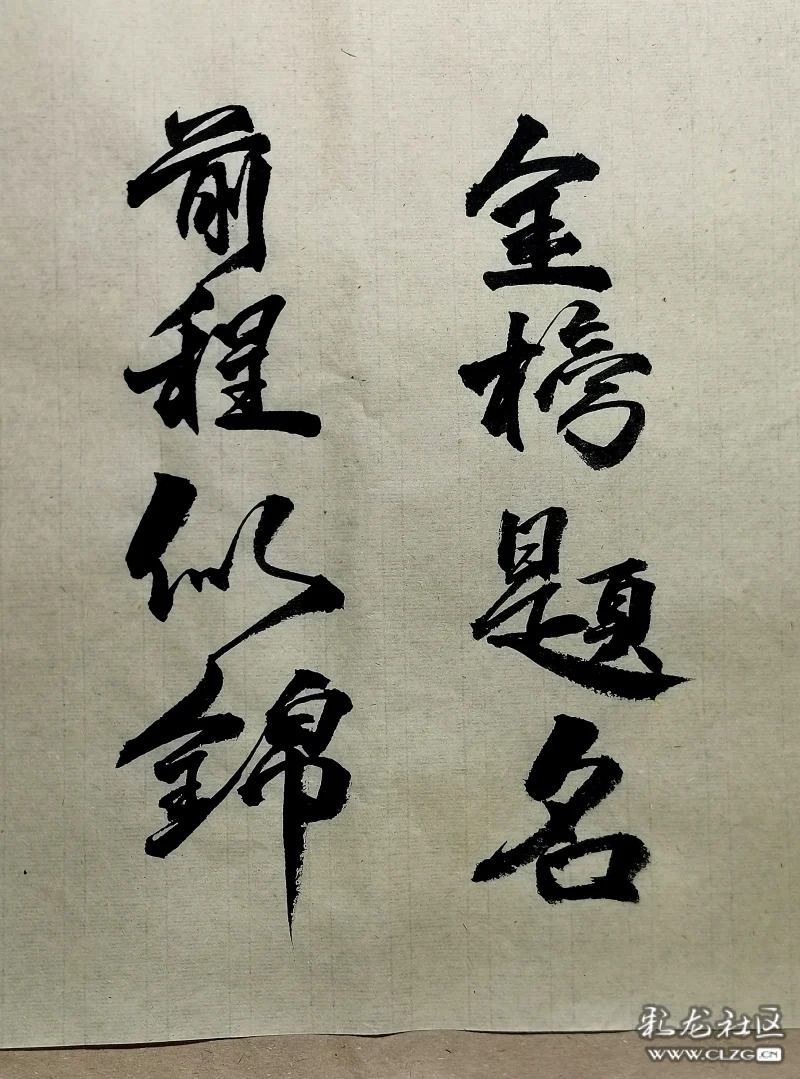 金榜题名
前程似錦
彩龙社区
WWW.CLZG.CN